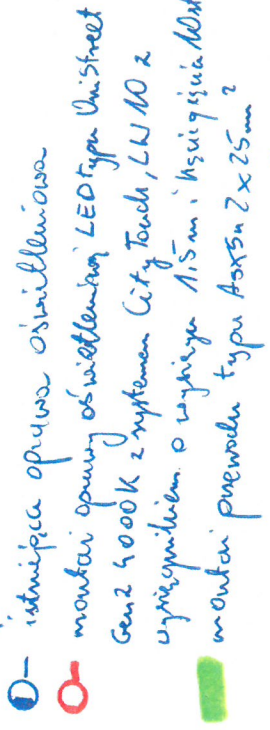 istniejąca oprawa oświetleniowa
montaż oprawy oświetleniowej LED typu UniStreet
Gen2 4000K z systemem City Touch, LW10 z
wysięgnikiem o wysięgu 1,5m i
montaż przewodu typu AsXSn 2x25mm²